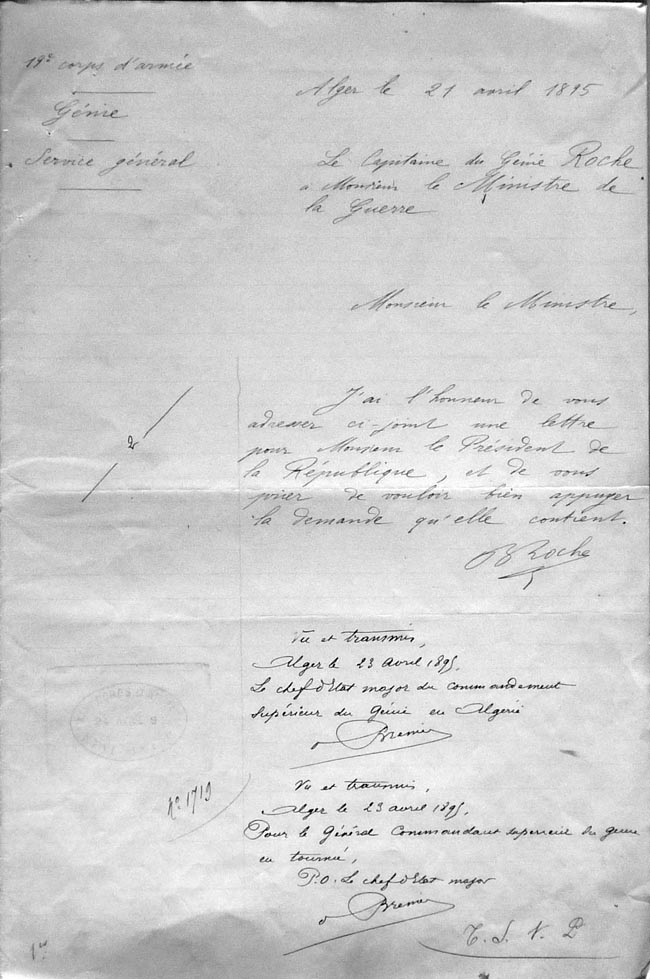 19e corps d'armée
Génie
Service général
Alger le 21 avril 1895
Le Capitaine du Génie Roche
à Monsieur le Ministre de
la Guerre
Monsieur le Ministre,
J'ai l'honneur de vous
adresser ci-joint une lettre
pour Monsieur le Président de
la République, et de vous
prier de vouloir bien appuyer
la demande qu'elle contient.
Roche
2
Vu et transmis,
Alger le 23 avril 1895,
Le chef d'Etat major du commandement
supérieur du Génie en Algérie
Vu et transmis,
Alger le 23 avril 1895,
Pour le Général Commandant supérieur du génie
en tournée,
P.O. Le chef d'Etat major
No 1719